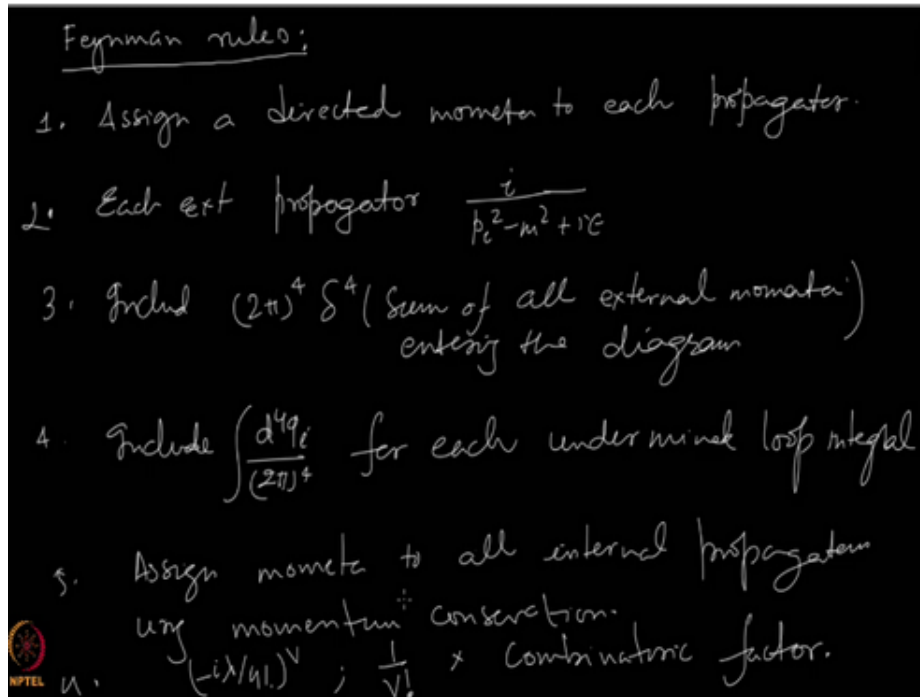 Feynman rules:
1. Assign a directed mometa to each propagator.
2. Each ext propagator i/(p_i^2 - m^2 + iε)
3. Includ (2π)^4 δ^4 (Sum of all external momata
entering the diagram)
4. Include ∫ d^4q_i/(2π)^4 for each underminet loop integral
5. Assign mometa to all internal propagators
using momentum conservation.
(-iλ/4!)^V ; 1/V! × Combinatoric factor.
NPTEL